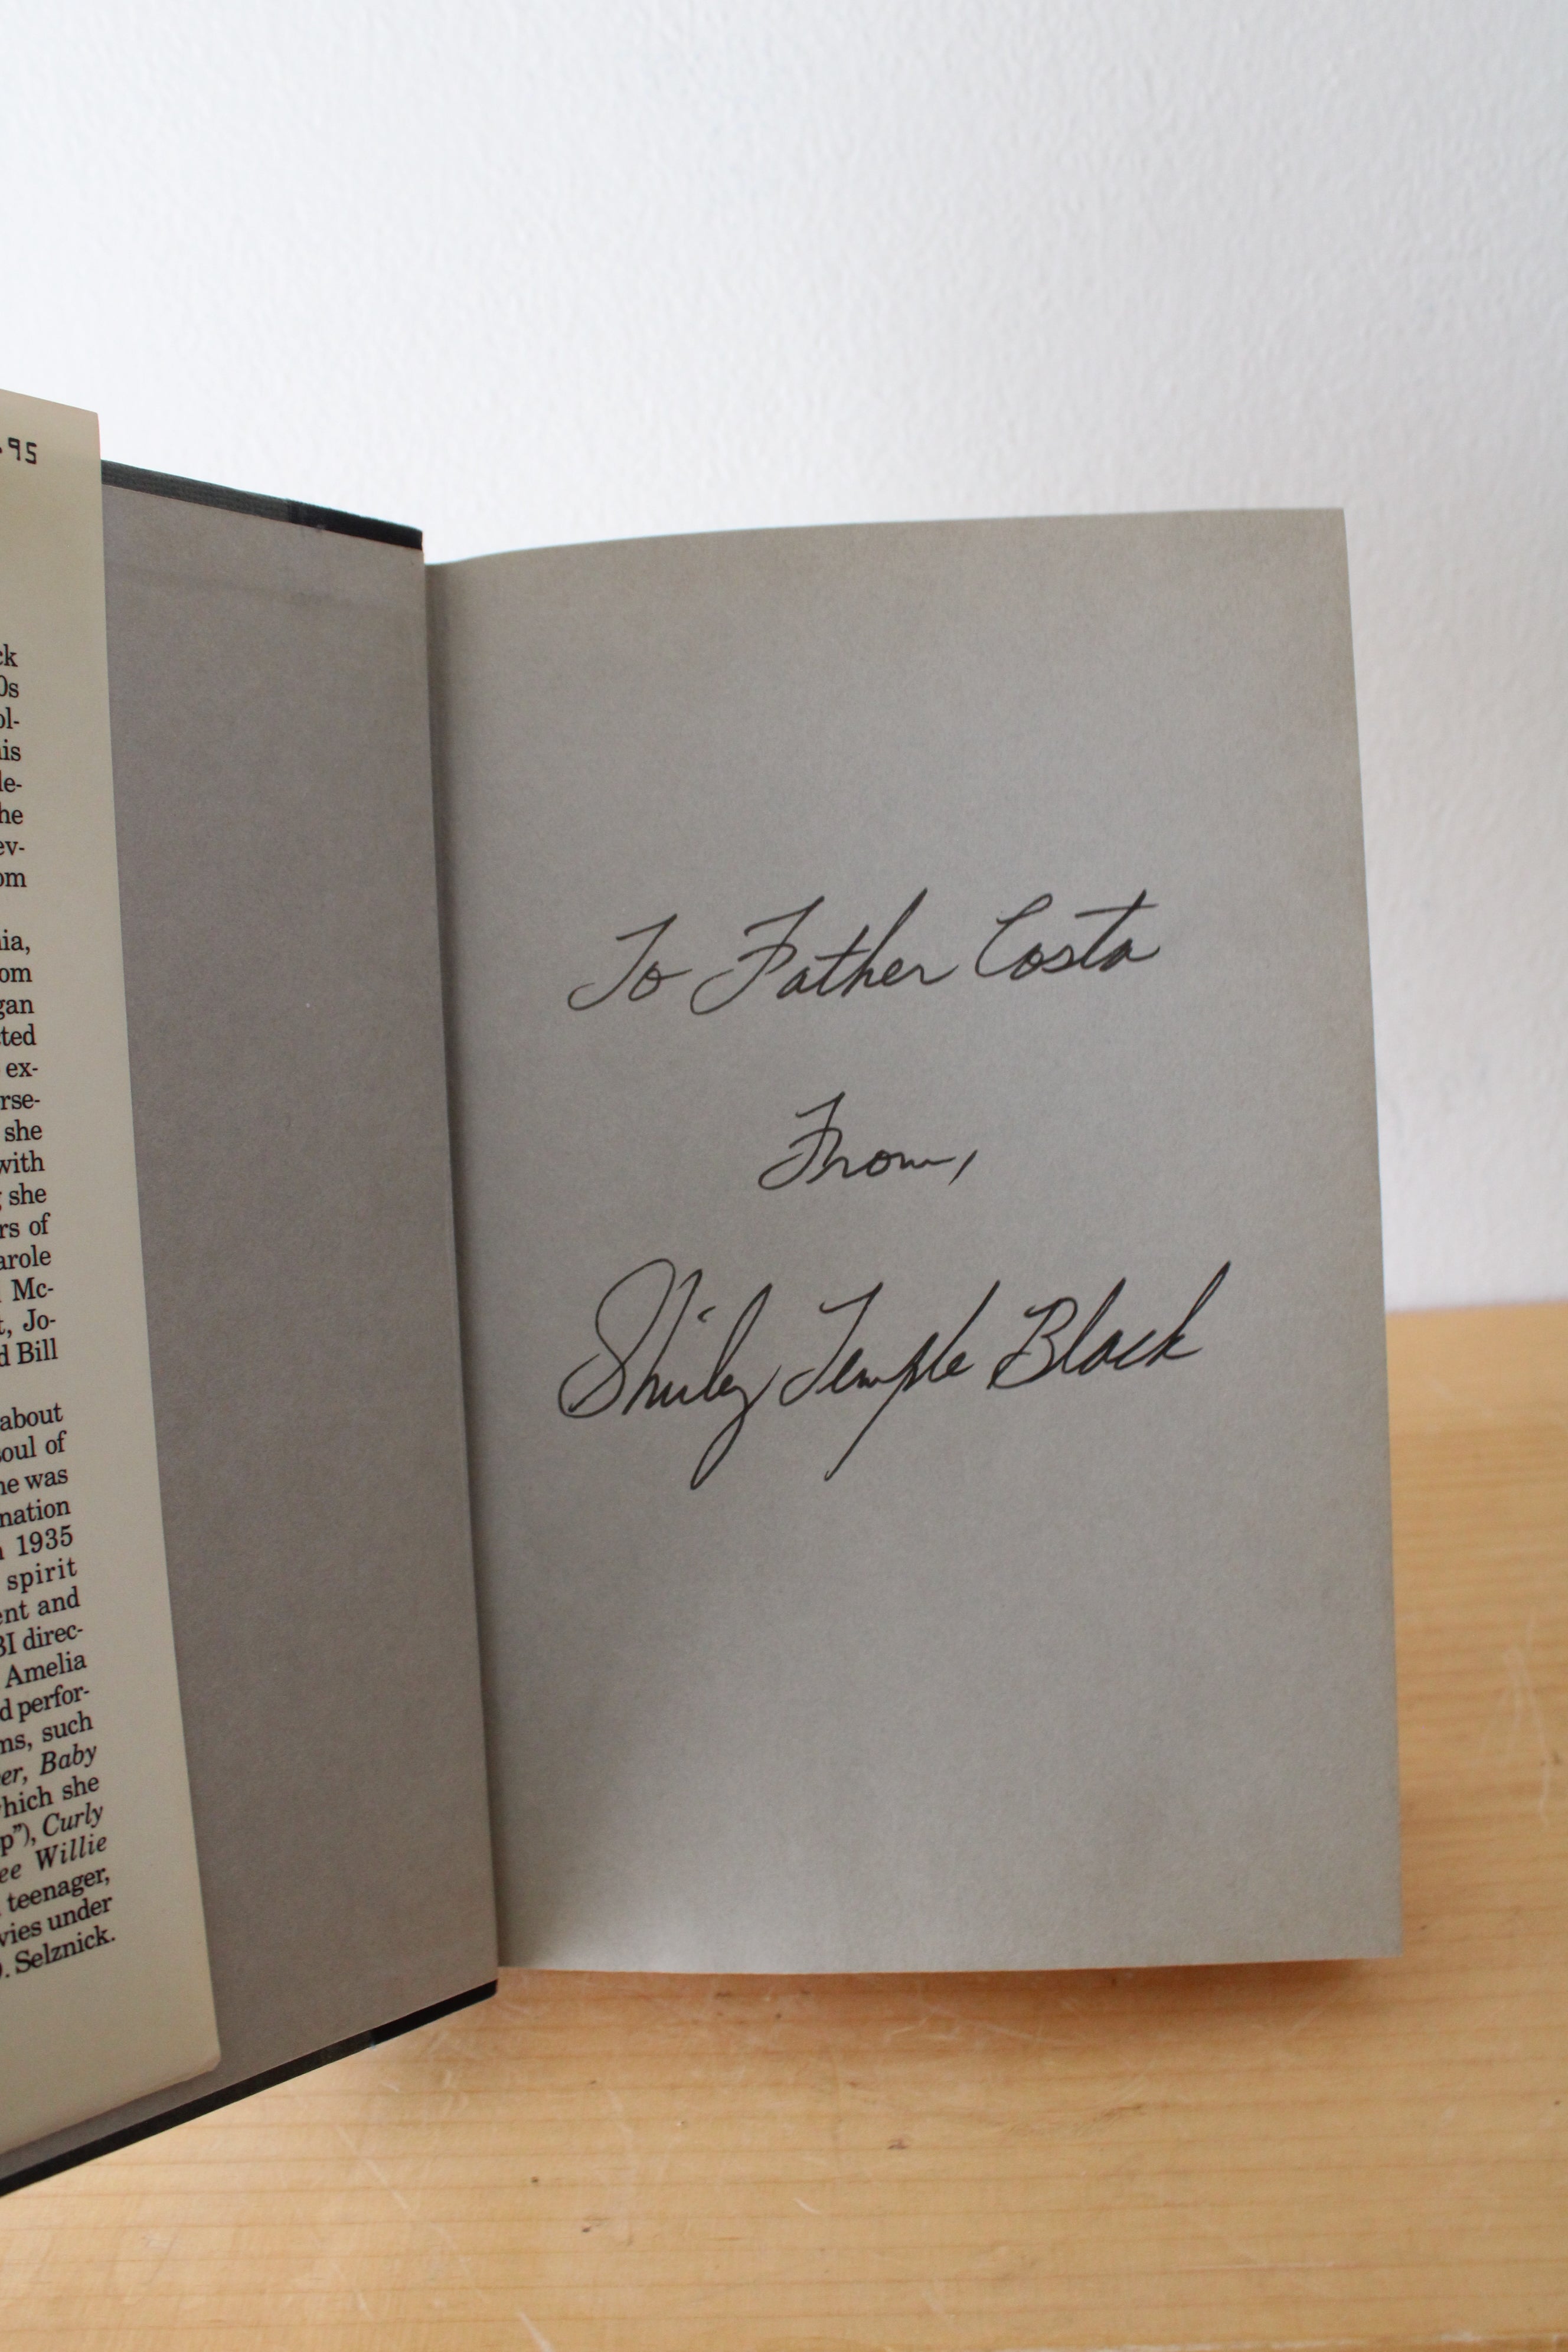 .95
ck
0s
ol-
is
le-
he
ev-
om
ia,
om
gan
ted
ex-
rse-
she
with
she
rs of
arole
Mc-
t, Jo-
d Bill
about
soul of
he was
nation
1935
spirit
ent and
BI direc-
Amelia
d perfor-
ms, such
er, Baby
which she
p"), Curly
ee Willie
teenager,
vies under
. Selznick.
To Father Costa
From,
Shirley Temple Black